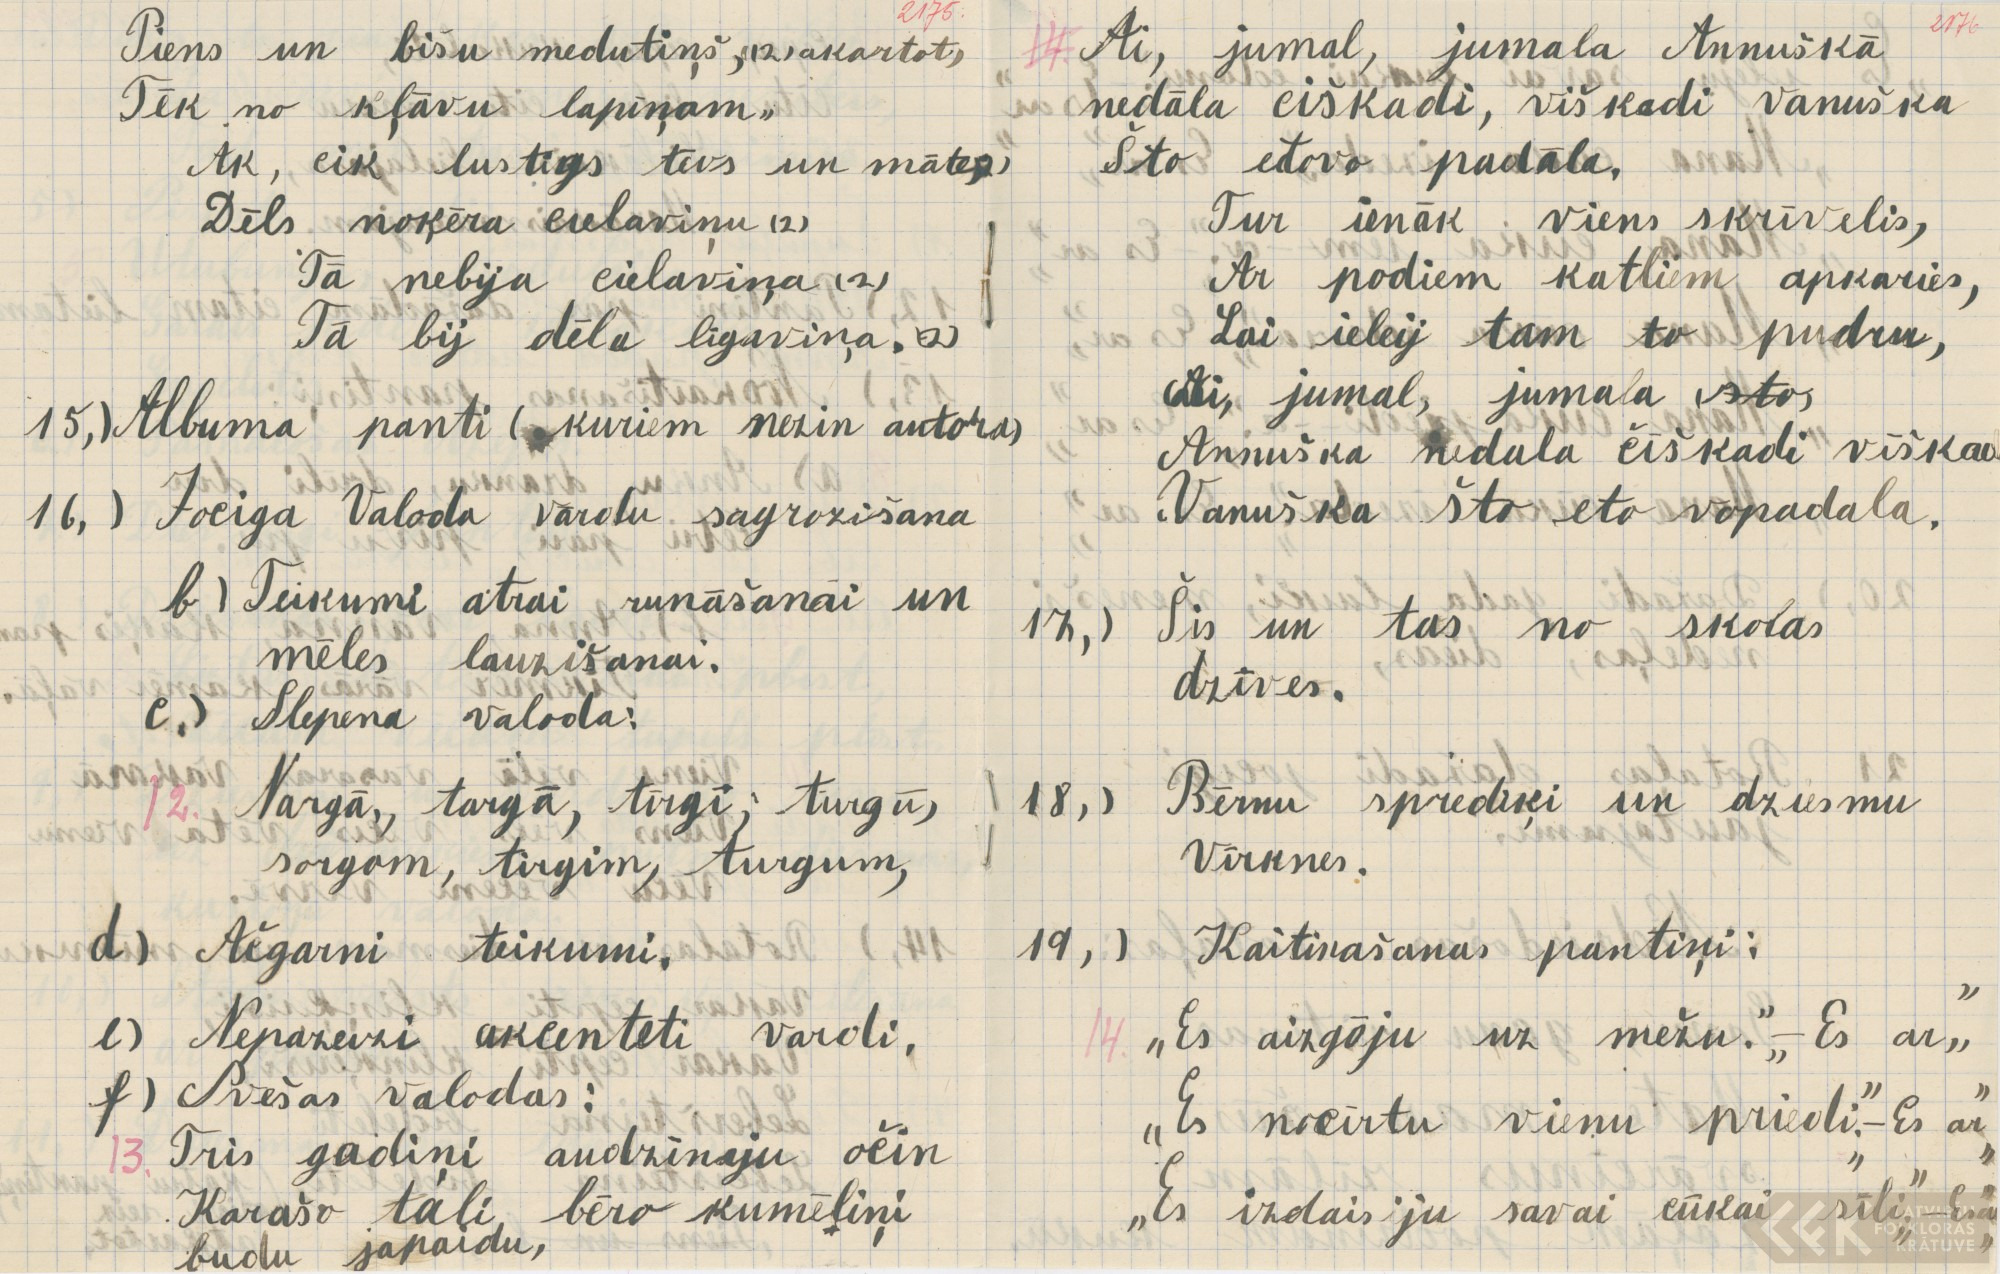 2175.
Piens un bišu medutiņš, (2) akartot,
Tēk no kļāvu lapiņam„
Ak, cik lustigs tēvs un māte, 2)
Dēls noķēra cielaviņu (2)
Tā nebija cielaviņa (2)
Tā bij dēla līgaviņa. (2)
15,) Albuma panti (kuriem nezin autora)
16,) Jociga Valoda vārdu sagrozišana
b) Teikumi atrai runāšanāi un
mēles lauzišanai.
c.) Slepena valoda:
12. Nargā,, targā, tīrgi; turgū,
sorgom, tirgim, turgum,
d) Ačgarni teikumi.
e) Nepareizi akcenteti vardi.
f) Svešas valodas:
13. Tris gadiņi audzinaju očin
Karašo tāli, bēro kumēliņi
budu japaidu,
2176
14. Ai, jumal, jumala Annuškā
nedāla ciškadi, viškadi vanuška
Što etovo padāla.
Tur ienāk viens skrīvelis,
Ar podiem katliem apkaries,
Lai ieleij tam to pudru,
Ai, jumal, jumala sto,
Annuška nedala čīškadi vīškad
Vanuška što eto vopadala.
17,) Šis un tas no skolas
dzīves.
18,) Bērnu sprediķi un dziesmu
Vīrknes.
19,) Kaitinašanas pantiņi:
14. „Es aizgāju uz mežu." – „Es ar„"
„Es nocirtu vienu priedi." – Es ar"
„Es izdaisiju savai cūkai sīli," – Es ar"
LATVIEŠU
FOLKLORAS
KRĀTUVE